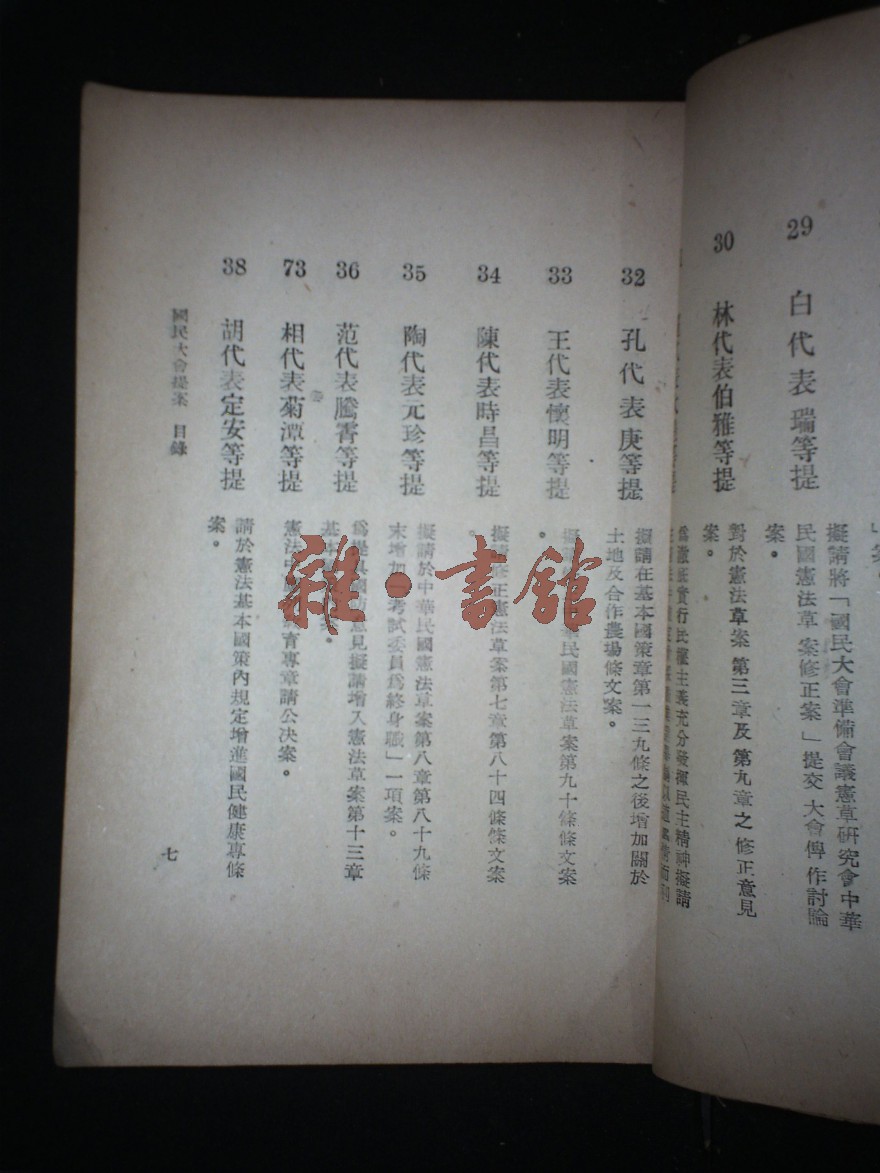 29 白代表瑞等提
擬請將「國民大會準備會議憲草研究會中華
民國憲法草案修正案」提交大會俾作討論
案。
30 林代表伯雅等提
對於憲法草案第三章及第九章之修正意見
案。
為徹底實行民權主義充分發揮民主精神擬請
32 孔代表庚等提
擬請在基本國策章第一三九條之後增加關於
土地及合作農場條文案。
33 王代表懷明等提
民國憲法草案第九十條條文案
。
34 陳代表時昌等提
擬請 正憲法草案第七章第八十四條條文案
。
35 陶代表元珍等提
擬請於中華民國憲法草案第八章第八十九條
末增加「考試委員為終身職」一項案。
36 范代表騰霄等提
為提 國 意見擬請增入憲法草案第十三章
基本 案。
73 相代表菊潭等提
憲法中 育專章請公決案。
38 胡代表定安等提
請於憲法基本國策內規定增進國民健康專條
案。
國民大會提案 目錄
七
雜·書館